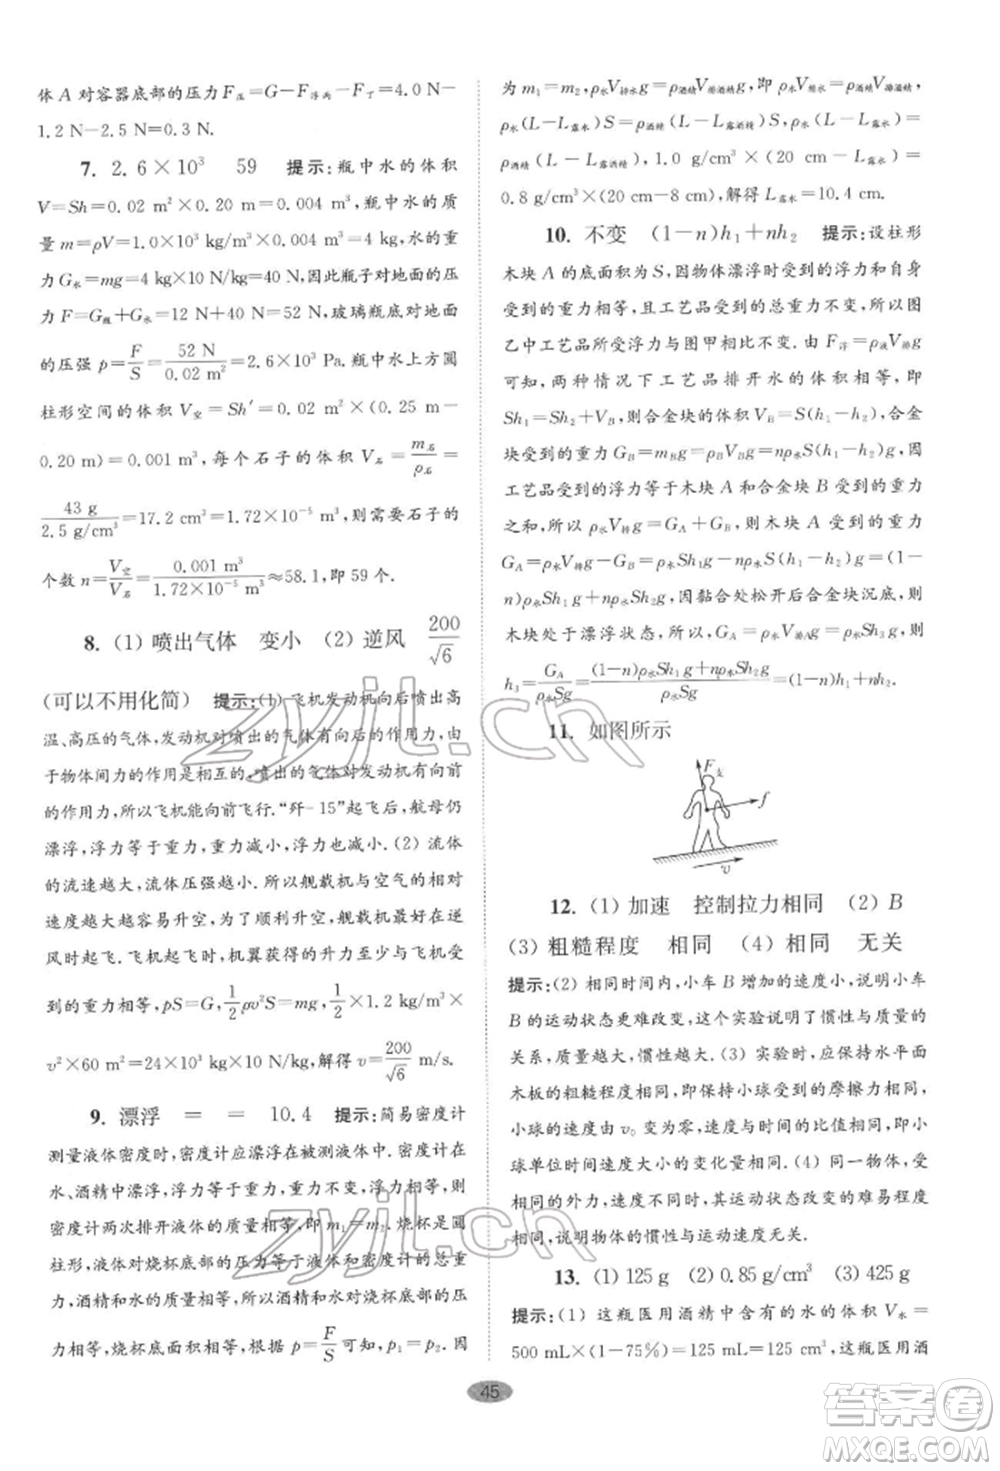 体 A 对容器底部的压力 F压=G-F浮丙-F丁=4.0 N-
1.2 N-2.5 N=0.3 N.
7. 2.6×10³ 59 提示:瓶中水的体积
V=Sh=0.02 m²×0.20 m=0.004 m³,瓶中水的质
量 m=ρV=1.0×10³ kg/m³×0.004 m³=4 kg,水的重
力 G水=mg=4 kg×10 N/kg=40 N,因此瓶子对地面的压
力 F=G瓶+G水=12 N+40 N=52 N,玻璃瓶底对地面
的压强 p=F/S=52 N/0.02 m²=2.6×10³ Pa.瓶中水上方圆
柱形空间的体积 V空=Sh′=0.02 m²×(0.25 m-
0.20 m)=0.001 m³,每个石子的体积 V石=m石/ρ石=
43 g/2.5 g/cm³=17.2 cm³=1.72×10⁻⁵ m³,则需要石子的
个数 n=V空/V石=0.001 m³/1.72×10⁻⁵ m³≈58.1,即 59 个.
8. (1) 喷出气体 变小 (2) 逆风 200/√6
(可以不用化简) 提示:(1) 飞机发动机向后喷出高
温、高压的气体,发动机对喷出的气体有向后的作用力,由
于物体间力的作用是相互的,喷出的气体对发动机有向前
的作用力,所以飞机能向前飞行.“歼-15”起飞后,航母仍
漂浮,浮力等于重力,重力减小,浮力也减小.(2) 流体
的流速越大,流体压强越小.所以舰载机与空气的相对
速度越大越容易升空,为了顺利升空,舰载机应该逆
风时起飞.飞机起飞时,机翼获得的升力至少与飞机
的重力相等,pS=G,1/2ρv²S=mg,1/2×1.2 kg/m³×
v²×60 m²=24×10³ kg×10 N/kg,解得 v=200/√6 m/s.
9. 漂浮 = = 10.4 提示:简易密度计
测量液体密度时,密度计应漂浮在被测液体中.密度计在
水、酒精中漂浮,浮力等于重力,重力不变,浮力相等,密
度计两次排开液体的质量相等,即 m₁=m₂.烧杯是圆
柱形,液体对烧杯底部的压力等于液体和密度计的总重
力,酒精和水的质量相等,所以酒精和水对烧杯底部的
压力相等,烧杯底面积相等,根据 p=F/S可知,p₁=p₂.因
为 m₁=m₂,ρ水V排水g=ρ酒精V排酒精g,即 ρ水V排水=ρ酒精V排酒精,
ρ水(L-L露水)S=ρ酒精(L-L露酒精)S,ρ水(L-L露水)=
ρ酒精(L-L露酒精),1.0 g/cm³×(20 cm-L露水)=
0.8 g/cm³×(20 cm-8 cm),解得 L露水=10.4 cm.
10. 不变 (1-n)h₁+nh₂ 提示:设柱形
木块 A 的底面积为 S,因物体漂浮时受到的浮力和自
身的重力相等,且工艺品受到的总重力不变,所以图
乙中工艺品所受浮力与图甲相比不变.由 F浮=ρ液V排g
可知,两种情况下工艺品排开水的体积相等,即
Sh₁=Sh₂+VB,则合金块的体积 VB=S(h₁-h₂),合金
块受到的重力 GB=mBg=ρBVBg=nρ水S(h₁-h₂)g,因
工艺品受到的浮力等于木块 A 和合金块 B 受到的重力
之和,所以 ρ水V排g=GA+GB,则木块 A 受到的重力
GA=ρ水V排g-GB=ρ水Sh₁g-nρ水S(h₁-h₂)g=(1-
n)ρ水Sh₁g+nρ水Sh₂g,因黏合处松开后合金块沉底,
木块处于漂浮状态,所以,GA=ρ水V排Ag=ρ水Sh₃g,则
h₃=GA/ρ水Sg=(1-n)ρ水Sh₁g+nρ水Sh₂g/ρ水Sg=(1-n)h₁+nh₂.
11. 如图所示
F支
f
v
12. (1) 加速 控制拉力相同 (2) B
(3) 粗糙程度 相同 (4) 相同 无关
提示:(2) 相同时间内,小车 B 增加的速度小,说明小车
B 的运动状态更难改变,这个实验说明了惯性与质量有
关,质量越大,惯性越大.(3) 实验时,应控制水平面
木板的粗糙程度相同,这样能使小球受到的摩擦力相同,
小球的速度由 v₀ 变为零时,与所用时间的比值相同,即小
球单位时间内速度的变化量相同.(4) 同一物体,受
相同的外力,速度不同时,其运动状态改变的难易程度
相同,说明物体的惯性与运动速度无关.
13. (1) 125 g (2) 0.85 g/cm³ (3) 425 g
提示:(1) 这瓶医用酒精中含有的水的体积 V水=
500 mL×(1-75%)=125 mL=125 cm³,这瓶医用酒
45
zyjl.cn
zyjl.cn
答案卷
MXQE.COM